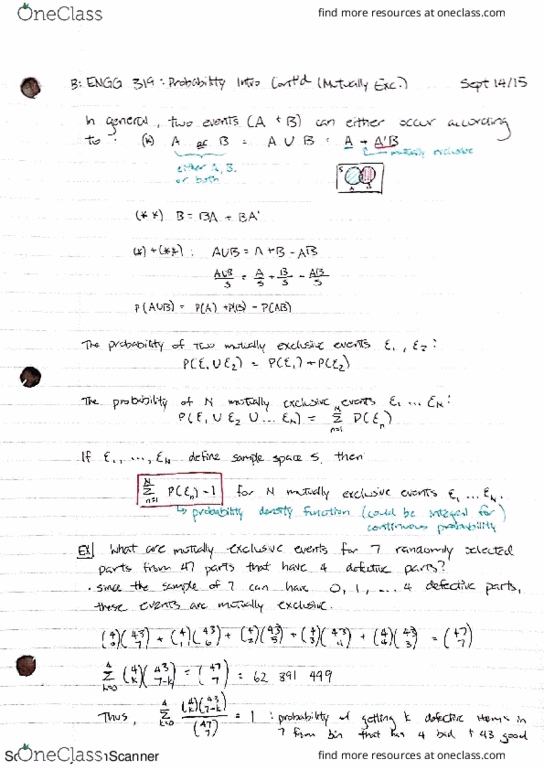 OneClass
find more resources at oneclass.com
B: ENGG 319: Probability Intro Cont'd (Mutually Exc.) Sept 14/15
In general, two events (A + B) can either occur according
to: (*) A or B = A ∪ B = A + A'B
mutually exclusive
either A, B,
or both
S
A B
(**) B = BA + BA'
(*) + (**) : A∪B = A + B - AB
A∪B/S = A/S + B/S - AB/S
P(A∪B) = P(A) + P(B) - P(AB)
The probability of two mutually exclusive events E₁, E₂:
P(E₁ ∪ E₂) = P(E₁) + P(E₂)
The probability of N mutually exclusive events E₁ ... E_N:
P(E₁ ∪ E₂ ∪ ... E_N) = Σ_{n=1}^{N} P(E_n)
If E₁, ..., E_N define sample space S, then
Σ_{n=1}^{N} P(E_n) = 1 for N mutually exclusive events E₁ ... E_N.
↳ probability density function (could be integral for)
continuous probability
EX What are mutually exclusive events for 7 randomly selected
parts from 47 parts that have 4 defective parts?
• since the sample of 7 can have 0, 1, ... 4 defective parts,
these events are mutually exclusive.
(4 0)(43 7) + (4 1)(43 6) + (4 2)(43 5) + (4 3)(43 4) + (4 4)(43 3) = (47 7)
Σ_{k=0}^{4} (4 k)(43 7-k) = (47 7) = 62 891 499
Thus, Σ_{k=0}^{4} (4 k)(43 7-k)/(47 7) = 1 : probability of getting k defective items in
7 from bin that has 4 bad + 43 good
OneClass Scanner
find more resources at oneclass.com